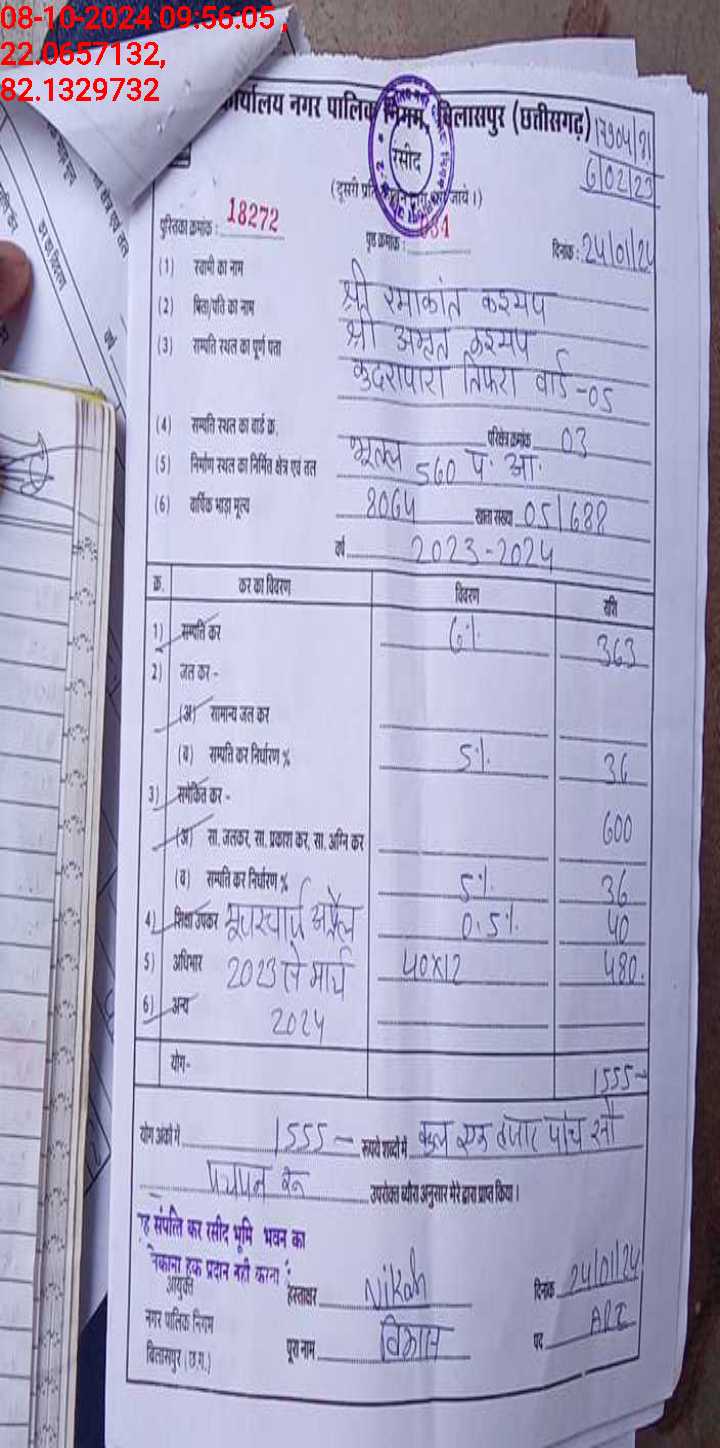 08-10-2024 09:56:05 ,
22.0657132,
82.1329732
कार्यालय नगर पालिक निगम, बिलासपुर (छत्तीसगढ़)
17904/21
6/02/23
रसीद
(दूसरी प्रति जाये।)
पुस्तिका क्रमांक : 18272 पृष्ठ क्रमांक : 084 दिनांक : 24/01/24
(1) स्वामी का नाम श्री रमाकांत कश्यप
(2) पिता/पति का नाम श्री अमृत कश्यप
(3) सम्पत्ति स्थल का पूर्ण पता कुदरापारा तिफरा वार्ड -05
(4) सम्पत्ति स्थल का वार्ड क्र. परिक्षेत्र क्रमांक 03
(5) निर्माण स्थल का निर्मित क्षेत्र एवं तल भूतल 560 प. आ.
(6) वार्षिक भाड़ा मूल्य 8064 खाता संख्या 05/688
वर्ष 2023-2024
क्र. कर का विवरण विवरण राशि
1) सम्पत्ति कर 6% 363
2) जल कर -
(अ) सामान्य जल कर
(ब) सम्पत्ति कर निर्धारण % 5% 36
3) समेकित कर -
(अ) सा. जलकर, सा. प्रकाश कर, सा. अग्नि कर 600
(ब) सम्पत्ति कर निर्धारण % 5% 36
4) शिक्षा उपकर 0.5% 40
5) अधिभार 40x12 480.
6) अन्य
यूजरचार्ज अप्रैल
2023 से मार्च
2024
योग- 1555-
योग अंकों में 1555- रूपये शब्दों में कुल एक हजार पांच सौ
पचपन रू उपरोक्त ब्यौरा अनुसार मेरे द्वारा प्राप्त किया।
यह संपत्ति कर रसीद भूमि भवन का
प्रदान नही करता
आयुक्त
नगर पालिक निगम
बिलासपुर (छ.ग.)
हस्ताक्षर दिनांक 24/01/24
पूरा नाम विकास पद ARI